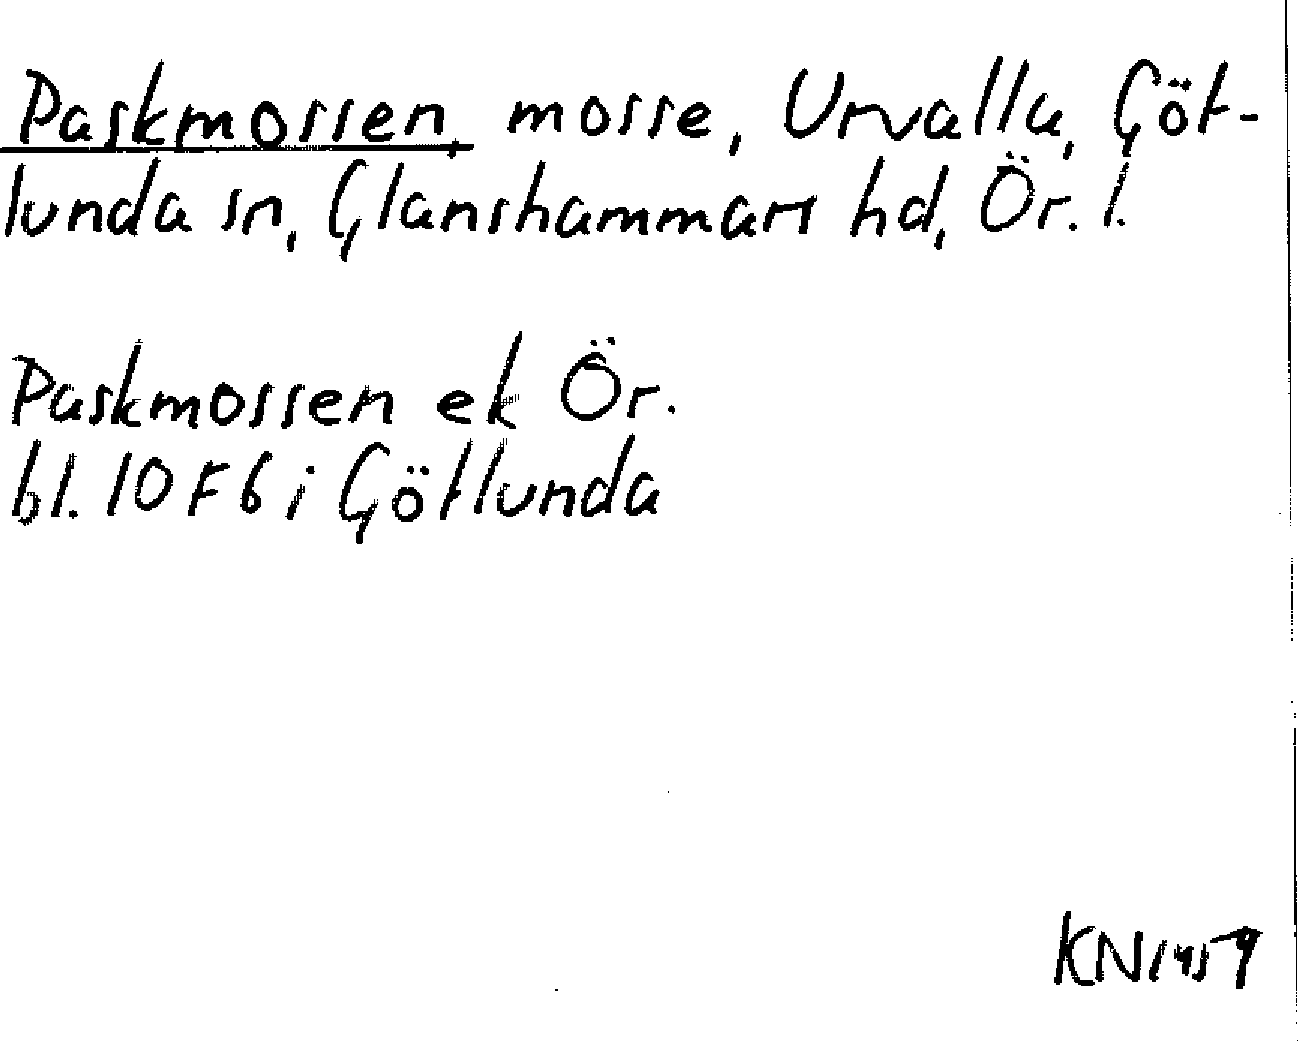 Paskmossen, mosse, Urvalla, Göt-
lunda sn, Glanshammars hd, Ör. l.
Paskmossen ek Ör.
bl. 10 F 6 i Götlunda
KN 1959